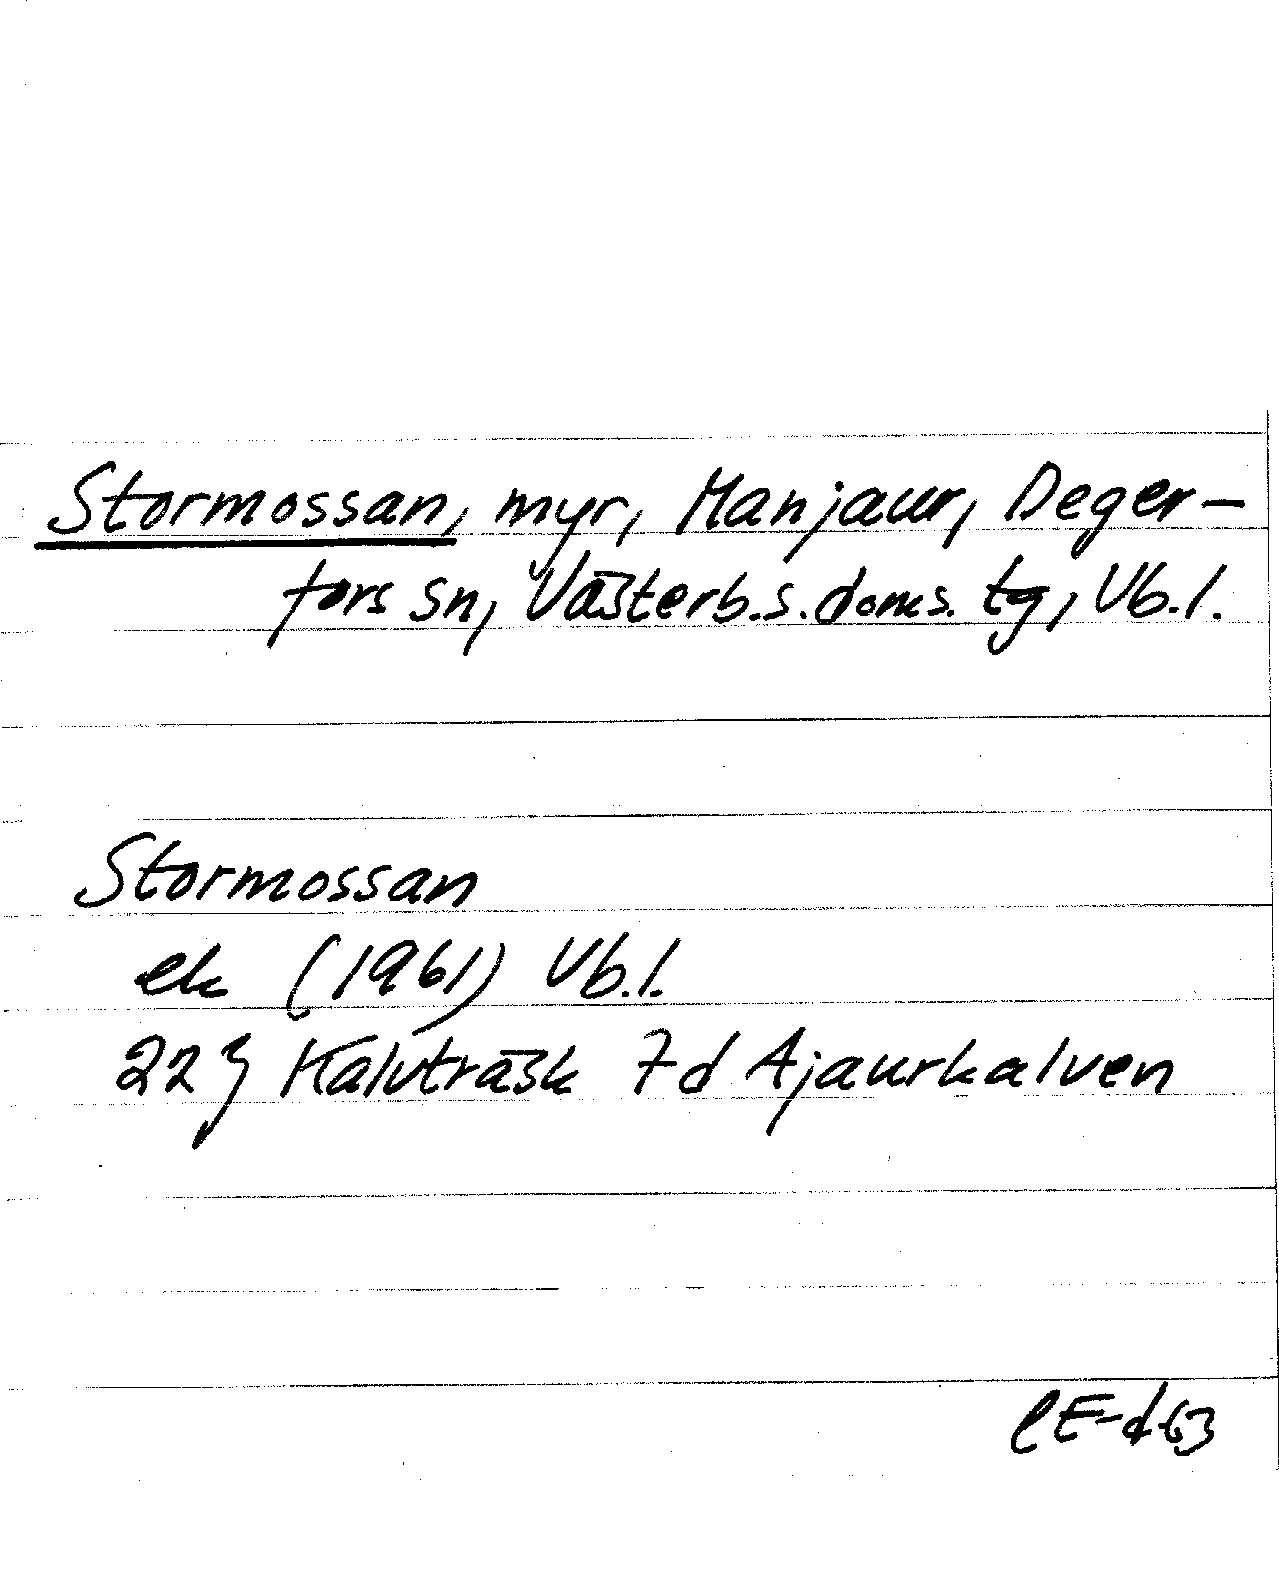 Stormossan, myr, Manjaur, Deger-
fors sn, Västerb.s.doms.tg, Vb.l.
Stormossan
ek (1961) Vb.l.
22J Kalvträsk 7d Ajaurkalven